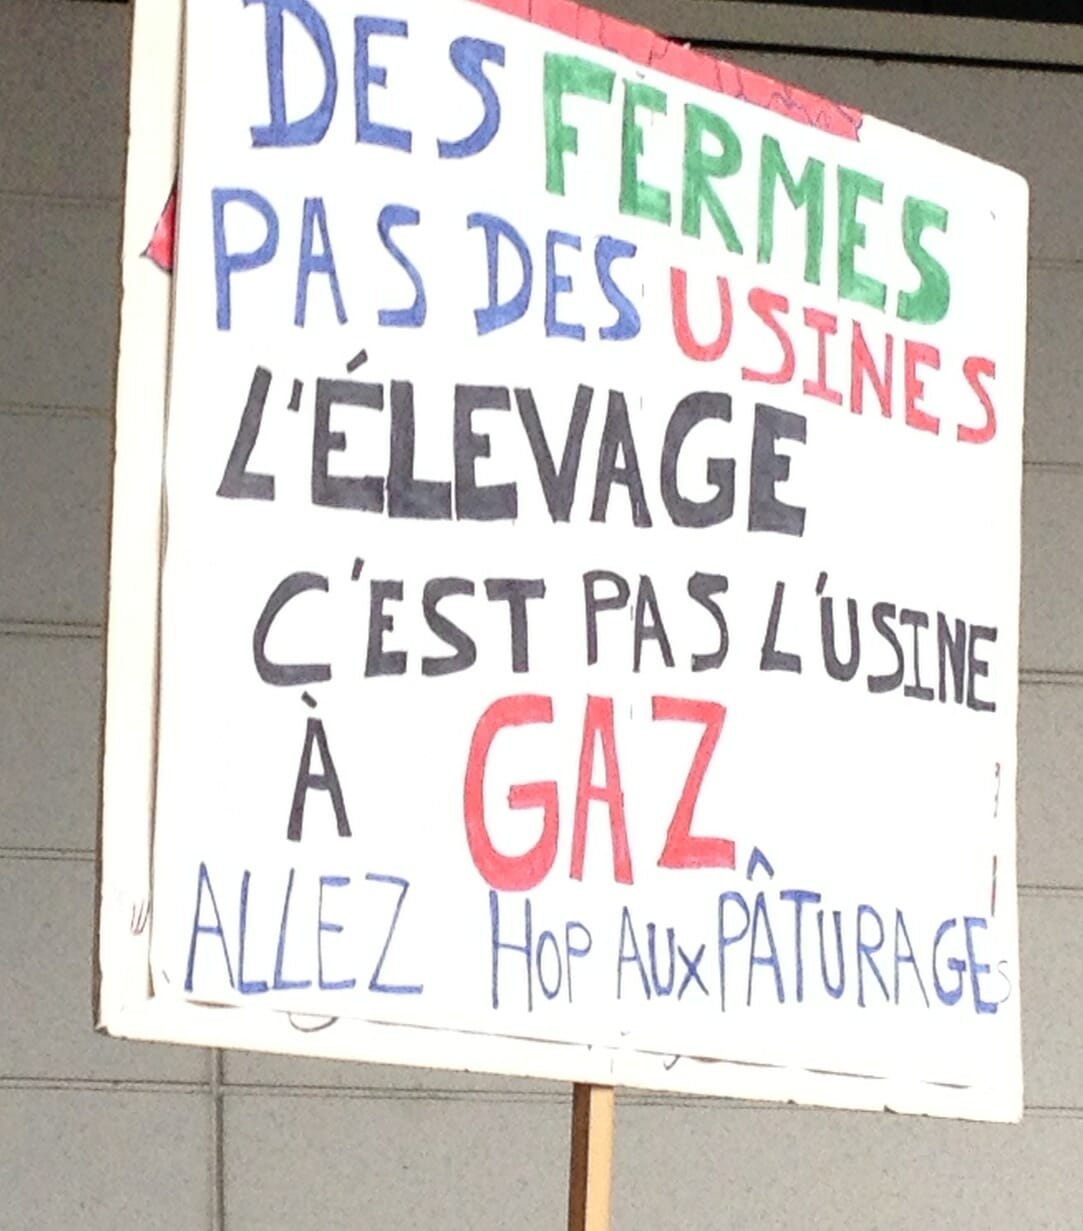 DES FERMES
PAS DES USINES
L'ÉLEVAGE
C'EST PAS L'USINE
À GAZ
ALLEZ HOP AUX PÂTURAGES